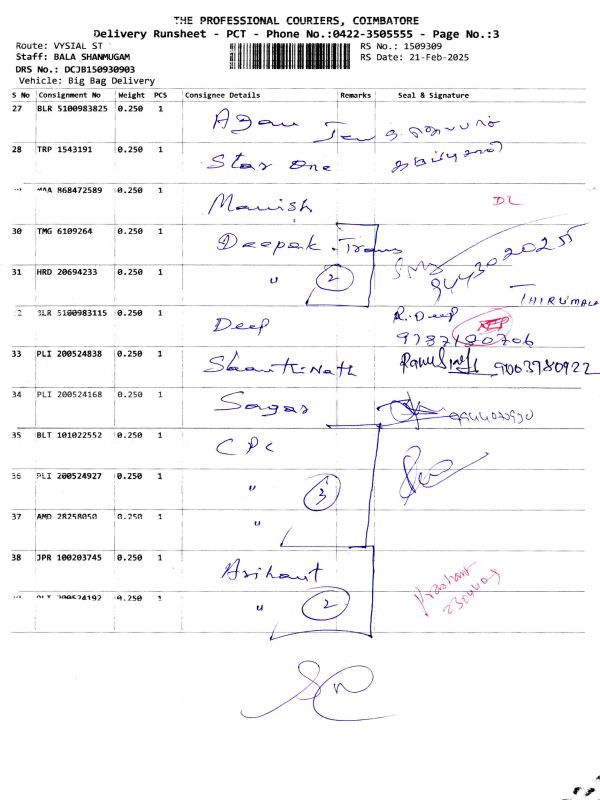 THE PROFESSIONAL COURIERS, COIMBATORE
Delivery Runsheet - PCT - Phone No.:0422-3505555 - Page No.:3
Route: VYSIAL ST
Staff: BALA SHANMUGAM
DRS No.: DCJB150930903
Vehicle: Big Bag Delivery
RS No.: 1509309
RS Date: 21-Feb-2025
S No Consignment No Weight PCS Consignee Details Remarks Seal & Signature
27 BLR 5100983825 0.250 1
28 TRP 1543191 0.250 1 Star one
868472589 0.250 1 Manish DL
30 TMG 6109264 0.250 1 Deepak Trans
31 HRD 20694233 0.250 1 " 2
THIRUMALA
BLR 5100983115 0.250 1 Deep R. Deep
9787180706
33 PLI 200524838 0.250 1 Shantinath 9003980922
34 PLI 200524168 0.250 1 Sagar
35 BLT 101022552 0.250 1 CPC
36 PLI 200524927 0.250 1 " 3
37 AMD 28258050 0.250 1 "
38 JPR 100203745 0.250 1 Arihant Prashant
200524192 0.250 1 " 2